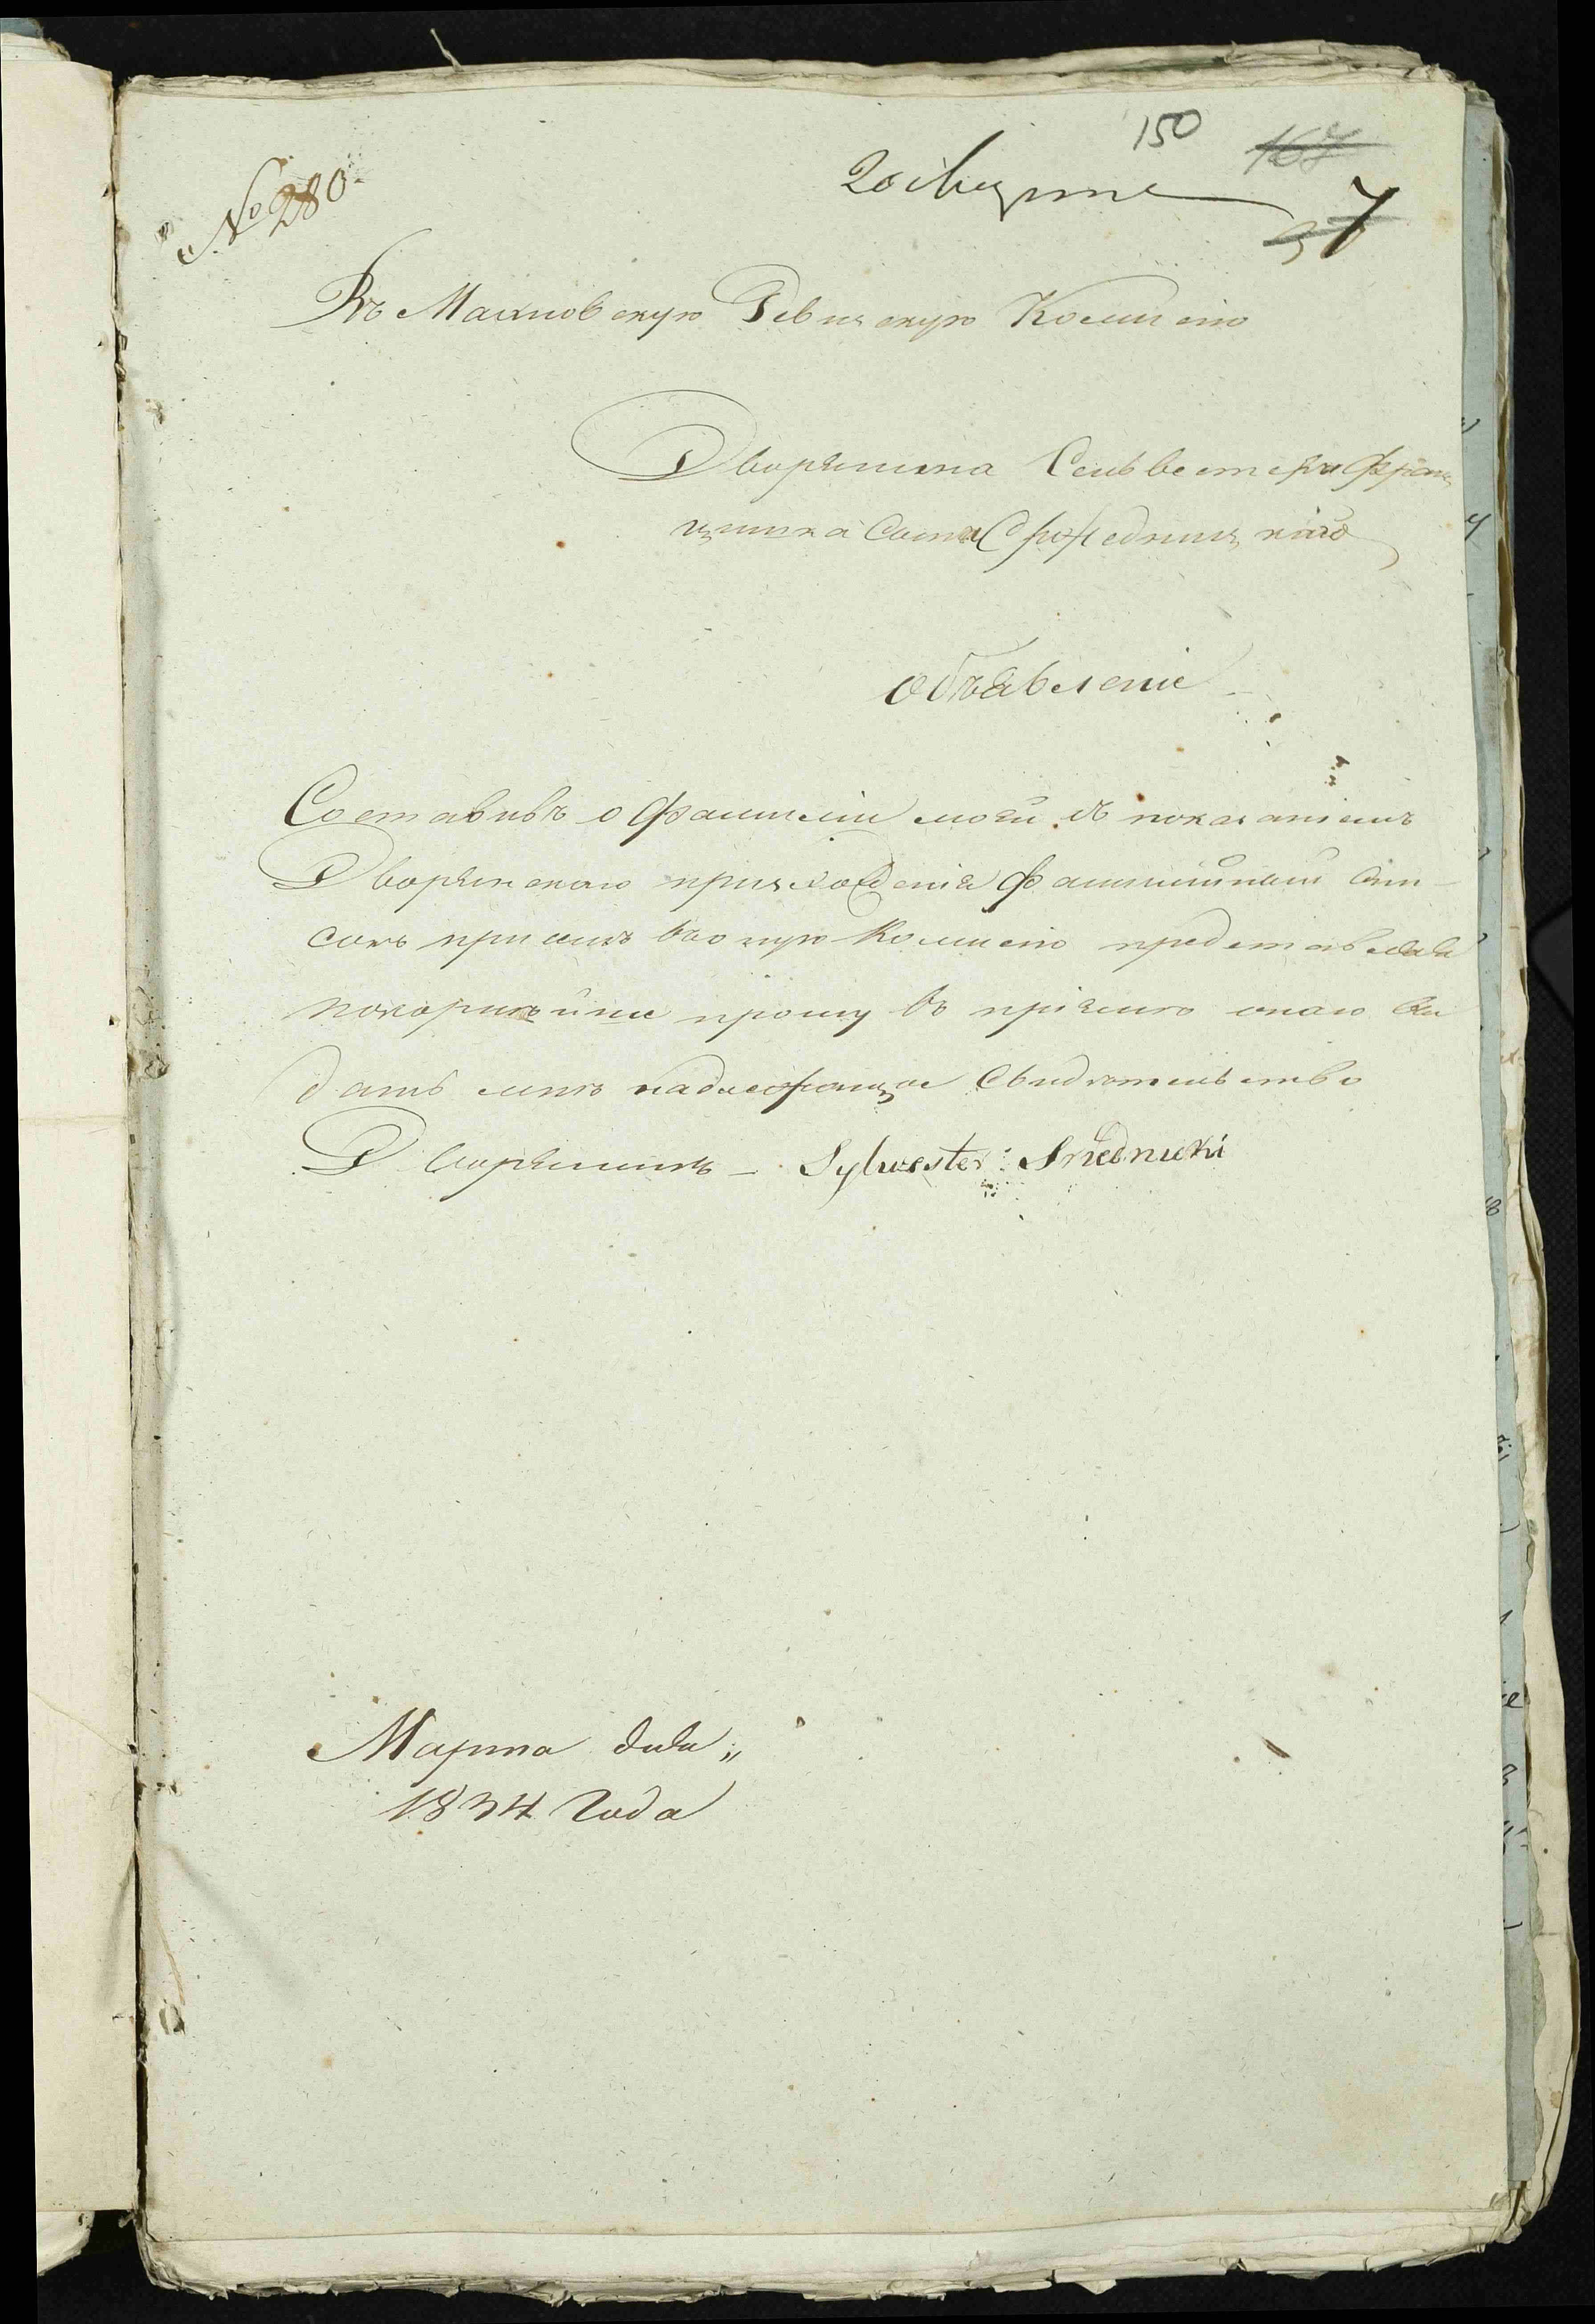 150 167
№ 280
20 Марта
7
Въ Махновскую Ревизскую Комисію
Дворянина Сельвестра Фран
цишка сына Средницкаго
Объявленіе
Составивъ о Фамиліи моей съ показаніемъ
Дворянскаго произхожденія фамилийный спи-
сокъ при семъ въ оную Комисію представляя
покорнѣйше прошу въ пріемѣ онаго вы
дать мнѣ надлежащое свидѣтельство
Дворянинъ - Sylwester Srzednicki
Марта дня „
1834 Года